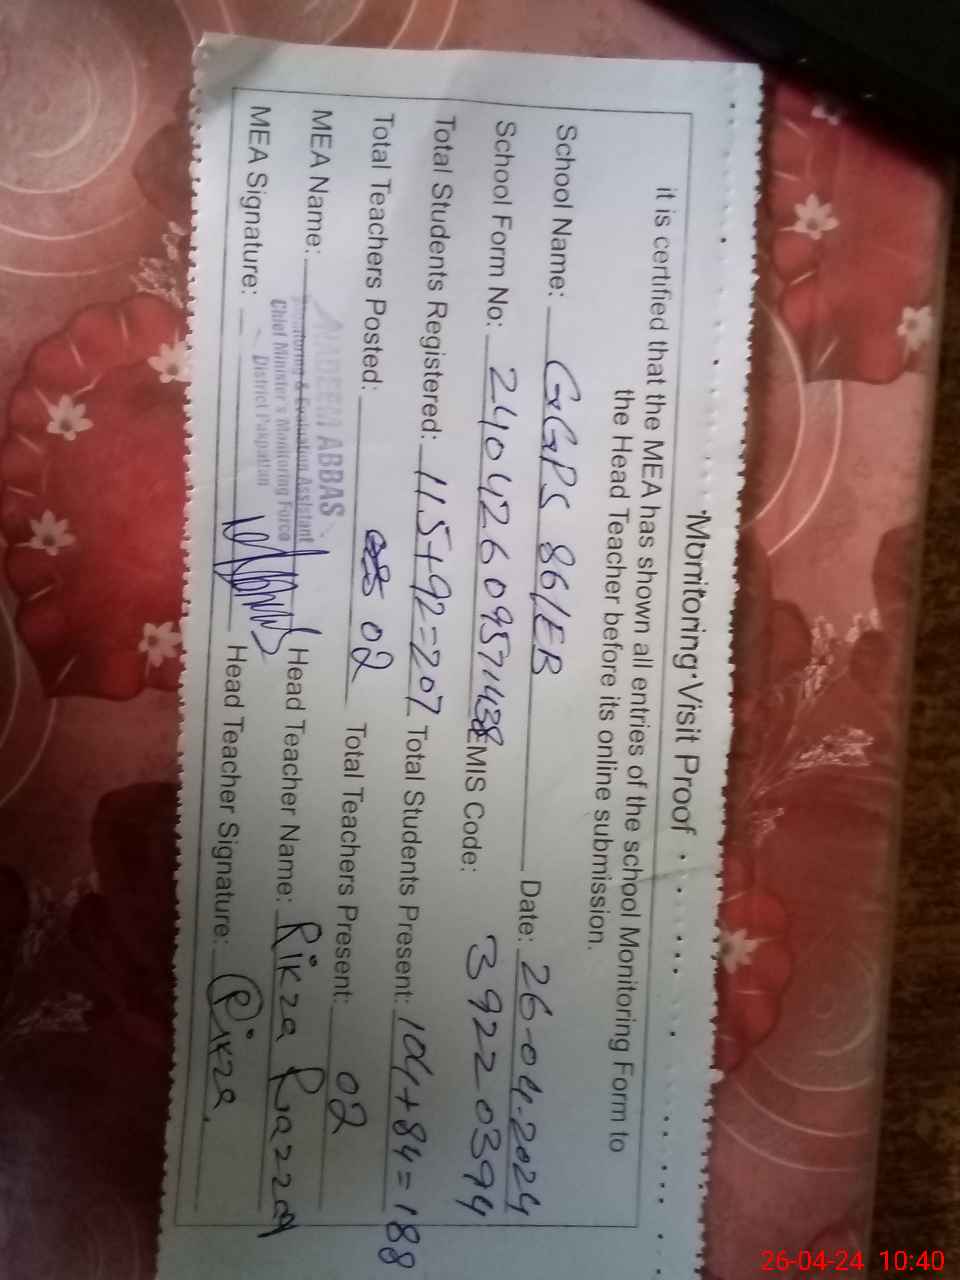 Monitoring Visit Proof
it is certified that the MEA has shown all entries of the school Monitoring Form to
the Head Teacher before its online submission.
School Name: GGPS 86/EB Date: 26-04-2024
School Form No: 24042609571438 EMIS Code: 39220394
Total Students Registered: 115+92=207 Total Students Present: 104+84=188
Total Teachers Posted: 02 Total Teachers Present: 02
MEA Name: NADEEM ABBAS Head Teacher Name: Rikza Razzaq
Monitoring & Evaluation Assistant
Chief Minister's Monitoring Force
District Pakpattan
MEA Signature: Head Teacher Signature: Rikza
26-04-24 10:40